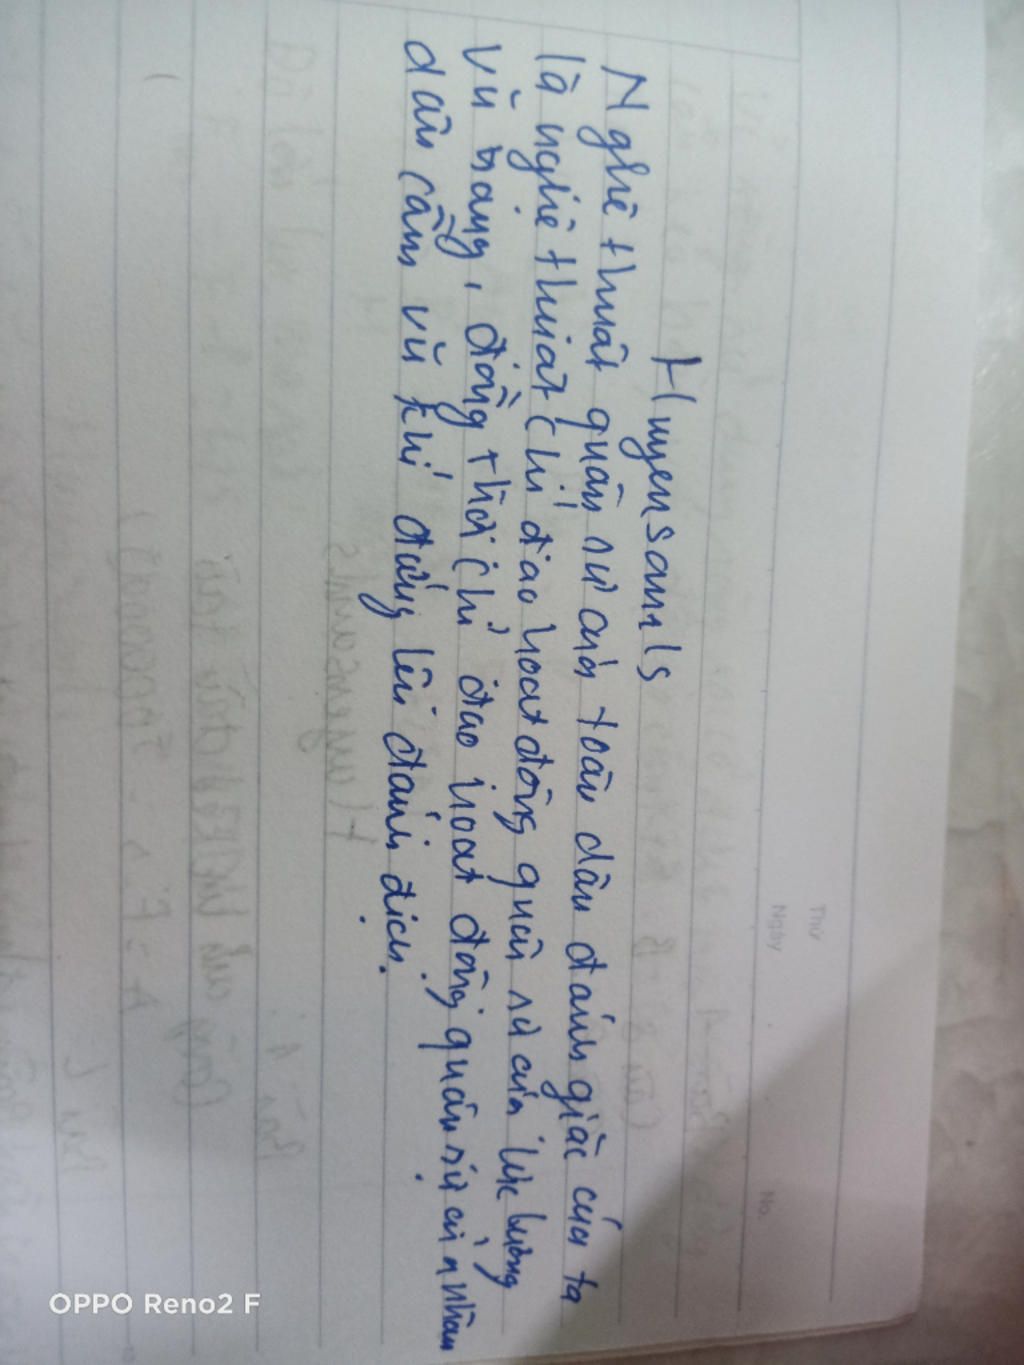 Huyensamls
Nghệ thuật quân sự của toàn dân đánh giặc của ta
là nghệ thuật chỉ đạo hoạt động quân sự của lực lượng
vũ trang, đồng thời chỉ đạo hoạt động quân sự của nhân
dân cầm vũ khí đứng lên đánh địch.
Thứ
Ngày
No.
OPPO Reno2 F